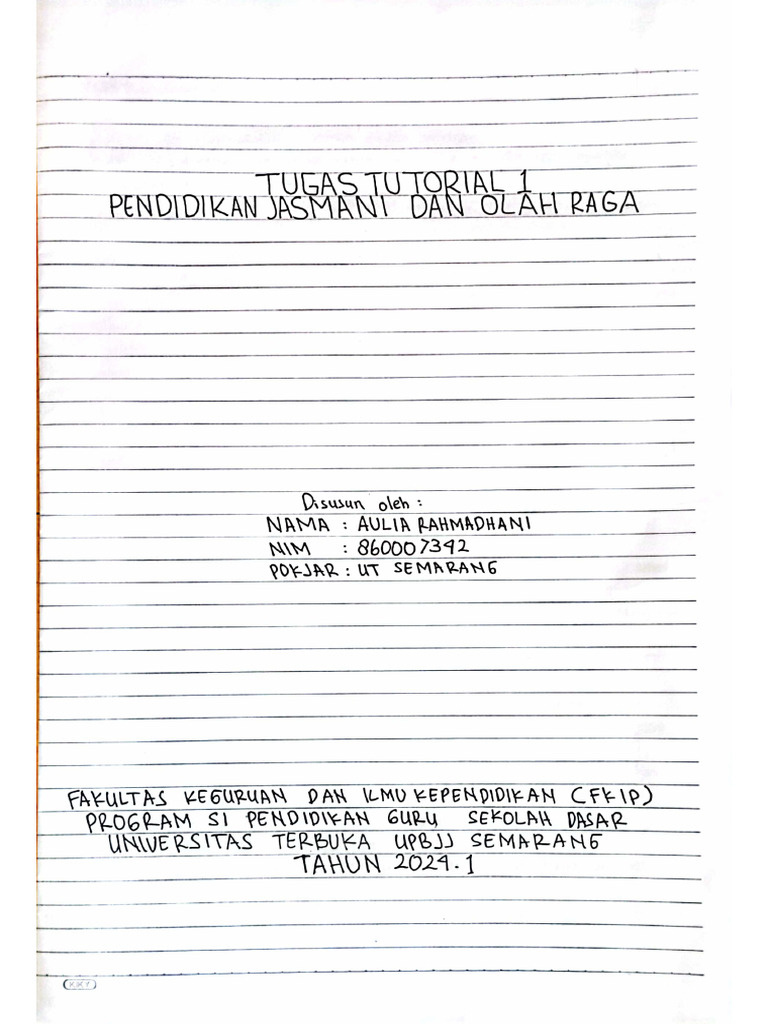 TUGAS TUTORIAL 1
PENDIDIKAN JASMANI DAN OLAH RAGA
Disusun oleh :
NAMA : AULIA RAHMADHANI
NIM : 860007342
POKJAR : UT SEMARANG
FAKULTAS KEGURUAN DAN ILMU KEPENDIDIKAN (FKIP)
PROGRAM SI PENDIDIKAN GURU SEKOLAH DASAR
UNIVERSITAS TERBUKA UPBJJ SEMARANG
TAHUN 2024.1
KKY